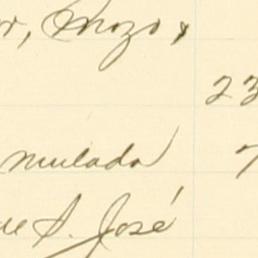 r, Mozo y
23
mulada 7
ue S. José